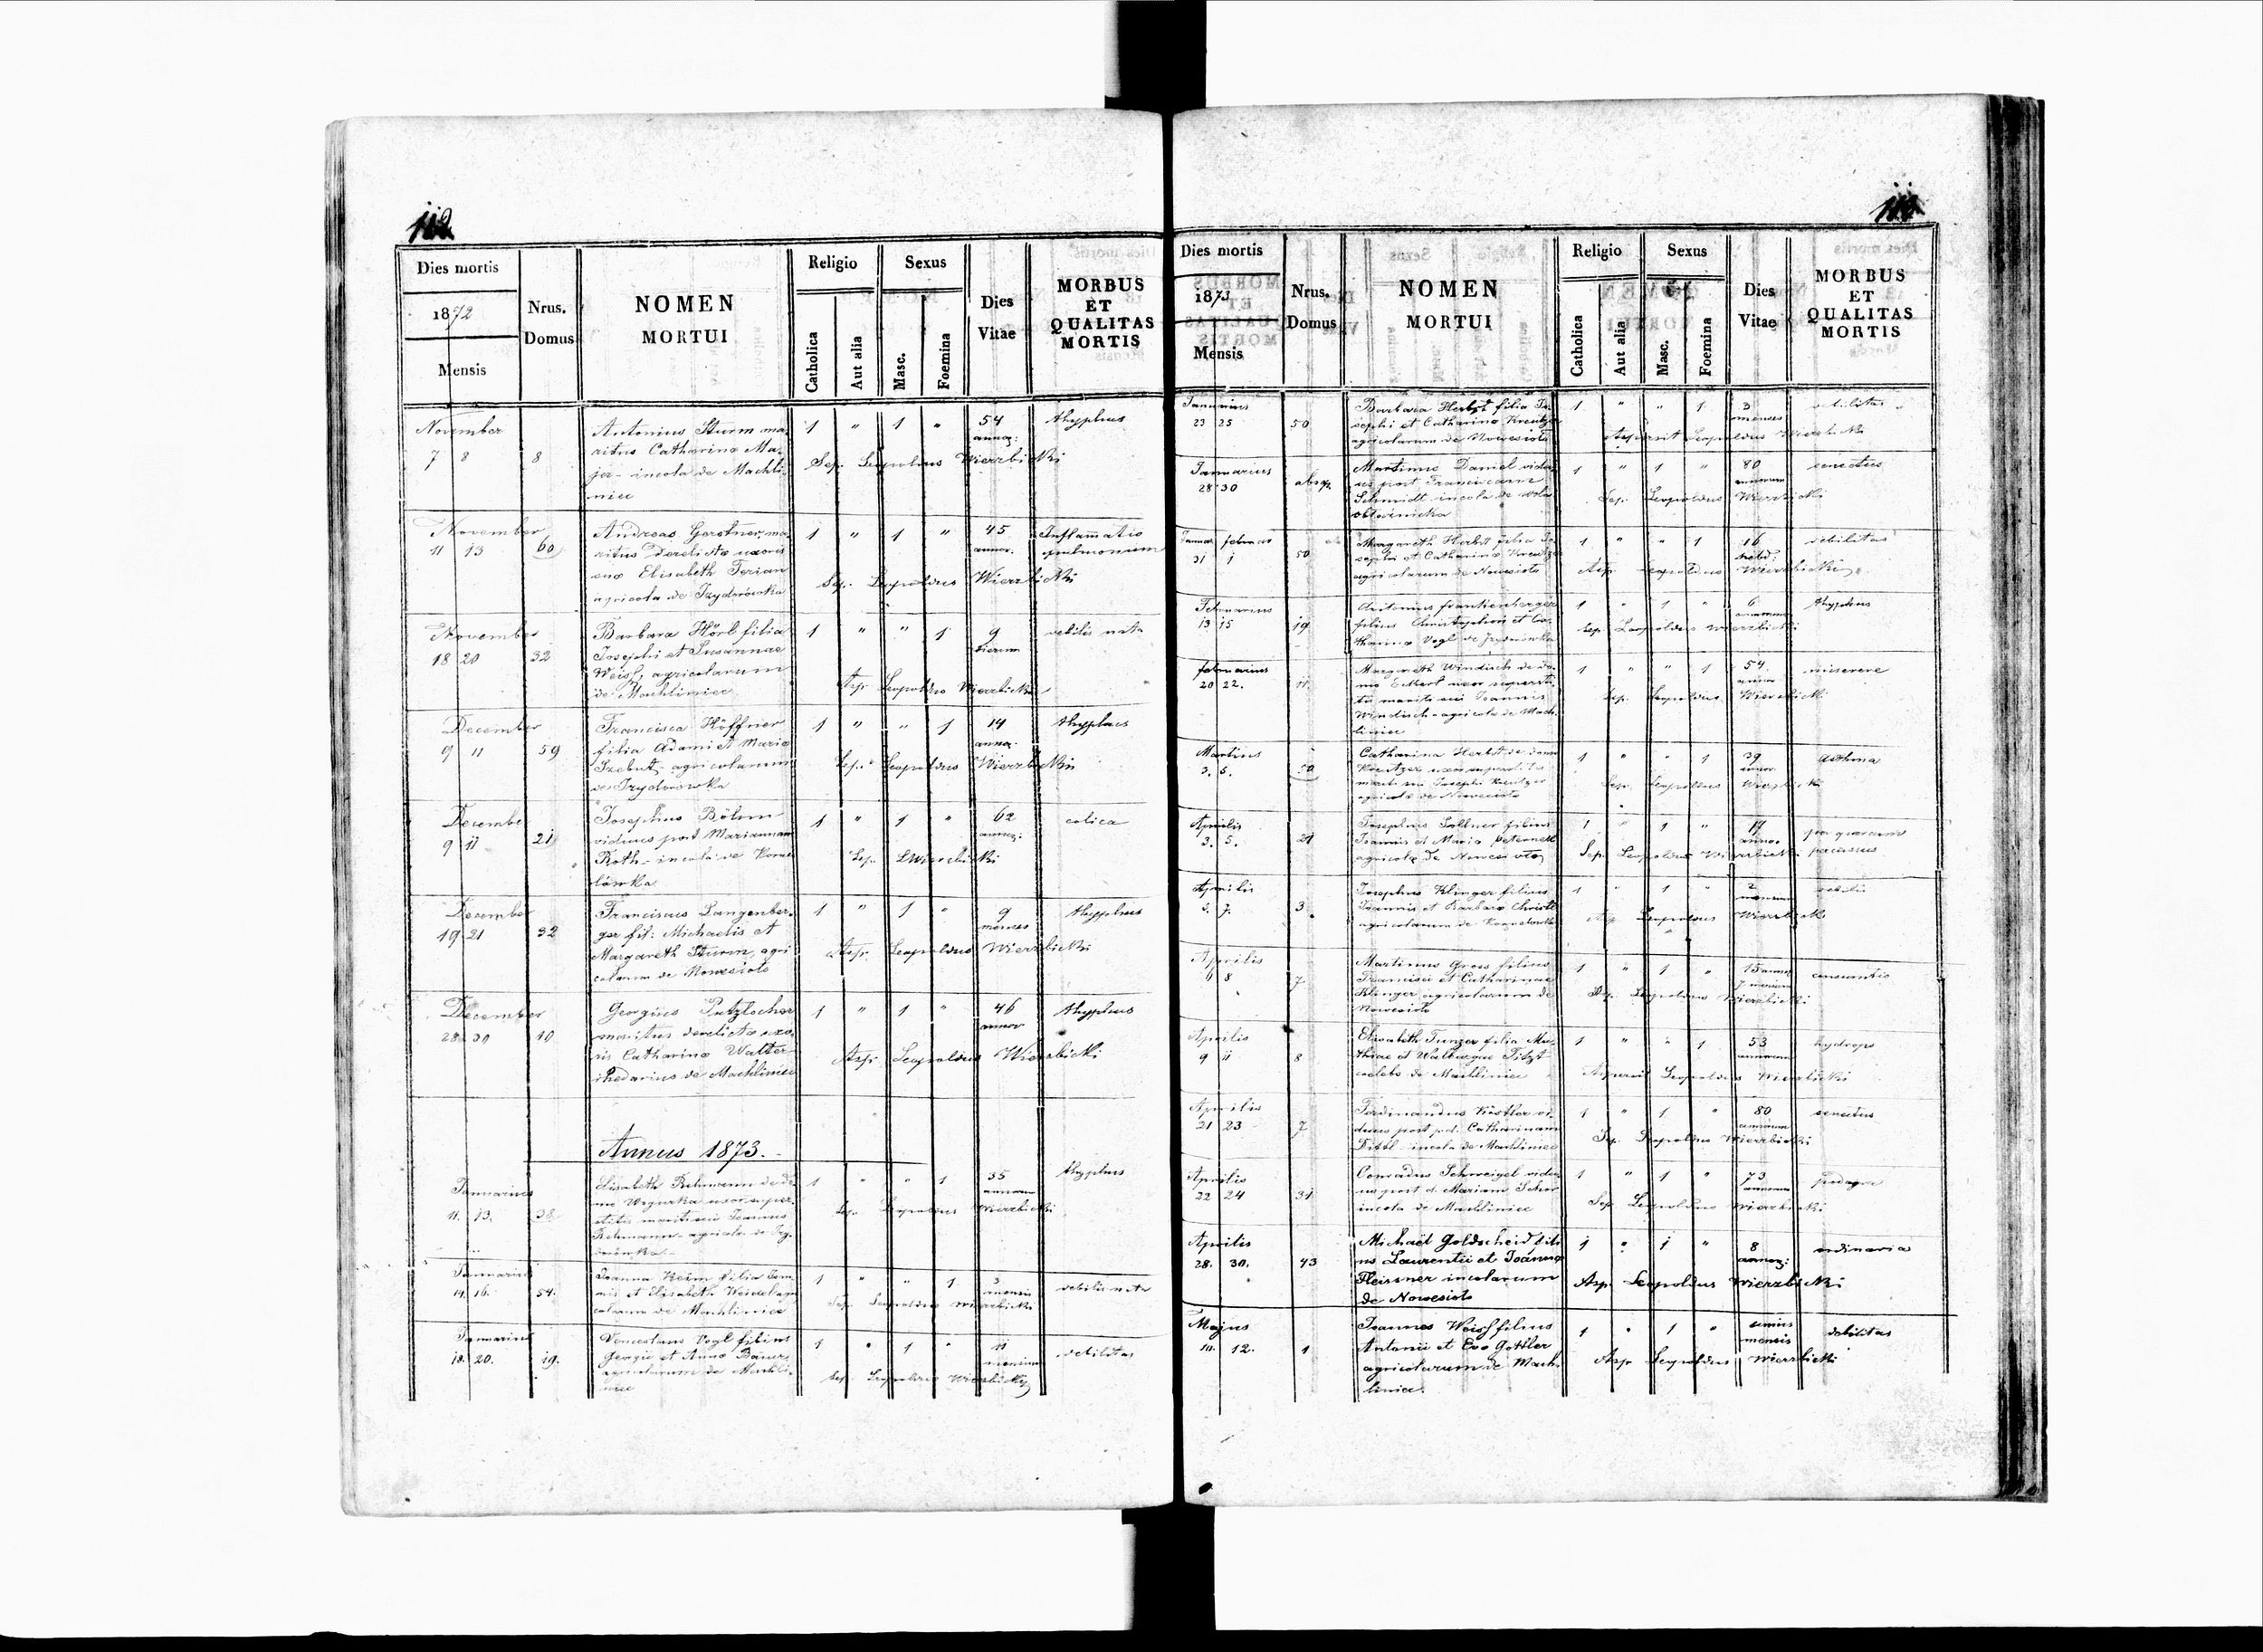 112
Dies mortis
1872
Mensis
Nrus.
Domus
NOMEN
MORTUI
Religio
Catholica
Aut alia
Sexus
Masc.
Foemina
Dies
Vitae
MORBUS
ET
QUALITAS
MORTIS
November
7 8
8
Antonius Sturm ma-
ritus Catharina Ma-
jer - incola de Machli-
niec
1 " 1 "
54
annor:
thyphus
Sep. Leopoldus Wierzbicki
November
11 13
60
Andreas Gerstner, ma-
ritus derelicta uxoris
suae Elisabeth Ferian
agricola de Izydorówka
1 " 1 "
45
annor.
Inflammatio
pulmonum
Sep. Leopoldus Wierzbicki
November
18 20
32
Barbara Hörl filia
Josephi et Susannae
Weiss, agricolarum
de Machliniec
1 " " 1
9
dierum
debilis nata
Asp. Leopoldus Wierzbicki
December
9 11
59
Francisca Höffner
filia Adami et Maria
agricolarum
de Izydorowka
1 " " 1
14
annor.
thyphus
Sep. Leopoldus Wierzbicki
December
9 11
21
Josephus Böhm
viduus post Mariannam
Roth - incola de Korne-
lówka
1 " 1 "
62
annor:
colica
Sep. LWierzbicki
December
19 21
32
Franciscus Langenber-
ger fil: Michaelis et
Margareth Sturm, agri
colarum de Nowesioło
1 " 1 "
9
menses
thyphus
Asp. Leopoldus Wierzbicki
December
28 30
10
Georgius Putzlocher
maritus derelicta uxo-
ris Catharina Walter
rhedarius de Machliniec
1 " 1 "
46
annor
thyphus
Asp. Leopoldus Wierzbicki
Annus 1873.
Januarius
11. 13.
38
Elisabeth Rehmann de do-
mo uxor super-
stitis mariti sui Joannis
Rehmann - agricola de Izy-
dorówka
1 " " 1
35
annorum
thyphus
Sep. Leopoldus Wierzbicki
Januarius
14. 16.
54.
Joanna Keim filia Joan-
nis et Elisabeth agri
colarum de Machliniec
1 " " 1
3
mensis
debilis nata
Sep. Leopoldus Wierzbicki
Januarius
18. 20.
19.
Venceslaus Vogl filius
Georgii et Anna Bauer
agricolarum de Machli-
niec
1 " 1 "
11
mensium
debilitas
Sep. Leopoldus Wierzbicki
Dies mortis
1873
Mensis
Nrus.
Domus
NOMEN
MORTUI
Religio
Catholica
Aut alia
Sexus
Masc.
Foemina
Dies
Vitae
MORBUS
ET
QUALITAS
MORTIS
Januarius
23 25
50
Barbara Herbst filia Jo-
sephi et Catharina Kreutzer
agricolarum de Nowesioło
1 " " 1
3
menses
debilitas
Aspersit Leopoldus Wierzbicki
Januarius
28 30
Martinus Daniel vidu-
us post Franciscam
Schmidt incola de wola
obłaźnicka
1 " 1 "
80
annorum
senectus
Sep. Leopoldus Wierzbicki
Januar februar
31 1
50
Margareth Herbst filia Jo-
sephi et Catharina Kreutzer
agricolarum de Nowesioło
1 " " 1
16
hebd.
debilitas
Asp. Leopoldus Wierzbicki
Februarius
13 15
19
Antonius frankenberger
filius Christophori et Ca-
tharina Vogl de Izydorówka
1 " 1 "
6
annorum
thyphus
Sep. Leopoldus Wierzbicki
februarius
20 22.
11
Margareth Windisch de do-
mo Eckert uxor supersti-
tis mariti sui Joannis
Windisch - agricola de Mach-
liniec
1 " " 1
54.
annor
miserere
Sep. Leopoldus Wierzbicki
Martius
3. 5.
50
Catharina Herbst de domo
Kreutzer uxor superstitis
mariti sui Josephi Kreutzer
agricola de Nowesioło
1 " " 1
39
annor.
asthma
Sep. Leopoldus Wierzbicki
Aprilis
3. 5.
21
Josephus Sollner filius
Joannis et Maria Peternell
agricola de Nowesioło
1 " 1 "
17
annor
percussus
Sep. Leopoldus Wierzbicki
Aprilis
5. 7.
3
Josephus Klinger filius
Joannis et Barbara Christl
agricolarum de Kornelówka
1 " 1 "
2
mensium
debilis
Asp. Leopoldus Wierzbicki
Aprilis
6 8
7
Martinus Gross filius
Francisci et Catharinae
Klinger agricolarum de
Nowesioło
1 " 1 "
15 annor
7 mensium
consumtio
Sep. Leopoldus Wierzbicki
Aprilis
9 11
8
Elisabeth Tunzer filia Ma-
thiae et Walburgae Titzl
caelebs de Machliniec
1 " " 1
53
annorum
hydrops
Aspersit Leopoldus Wierzbicki
Aprilis
21 23
7
Ferdinandus Köstler vi-
duus post p.d. Catharinam
Dittl - incola de Machliniec
1 " 1 "
80
annorum
senectus
Sep. Leopoldus Wierzbicki
Aprilis
22 24
31
Conradus Schweigel vidu-
us post d. Mariam Schor
incola de Machliniec
1 " 1 "
73
annorum
podagra
Sep. Leopoldus Wierzbicki
Aprilis
28. 30.
43
Michaël Goldscheid fili-
us Laurentii et Joanna
Fleissner incolarum
de Nowesioło
1 " 1 "
8
annor:
ordinaria
Asp. Leopoldus Wierzbicki
Majus
10. 12.
1
Joannes Weiss filius
Antonii et Eva Gottler
agricolarum de Mach-
liniec.
1 " 1 "
unius
mensis
debilitas
Asp Leopoldus Wierzbicki